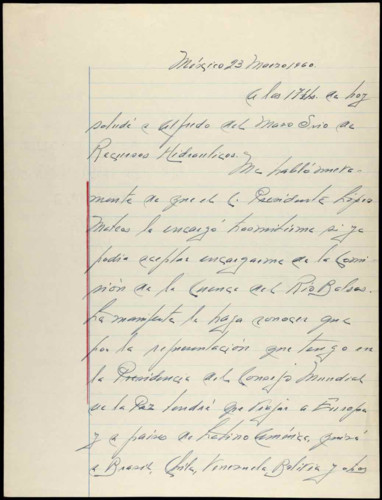 México 23 Marzo 1960.
A las 17 hs. de hoy
saludé a Alfredo del Mazo Srio de
Recursos Hidraulicos.
Me habló nueva-
mente de que el C. Presidente López
Mateos le encargó trasmitirme si ya
podía aceptar encargarme de la Comi-
sión de la Cuenca del Río Balsas.
Le manifesté le haga conocer que
por la representación que tengo en
la Presidencia del Consejo Mundial
de la Paz tendré que viajar a Europa
y a países de Latino América, quizá
a Brasil, Chile, Venezuela Bolivia y otros